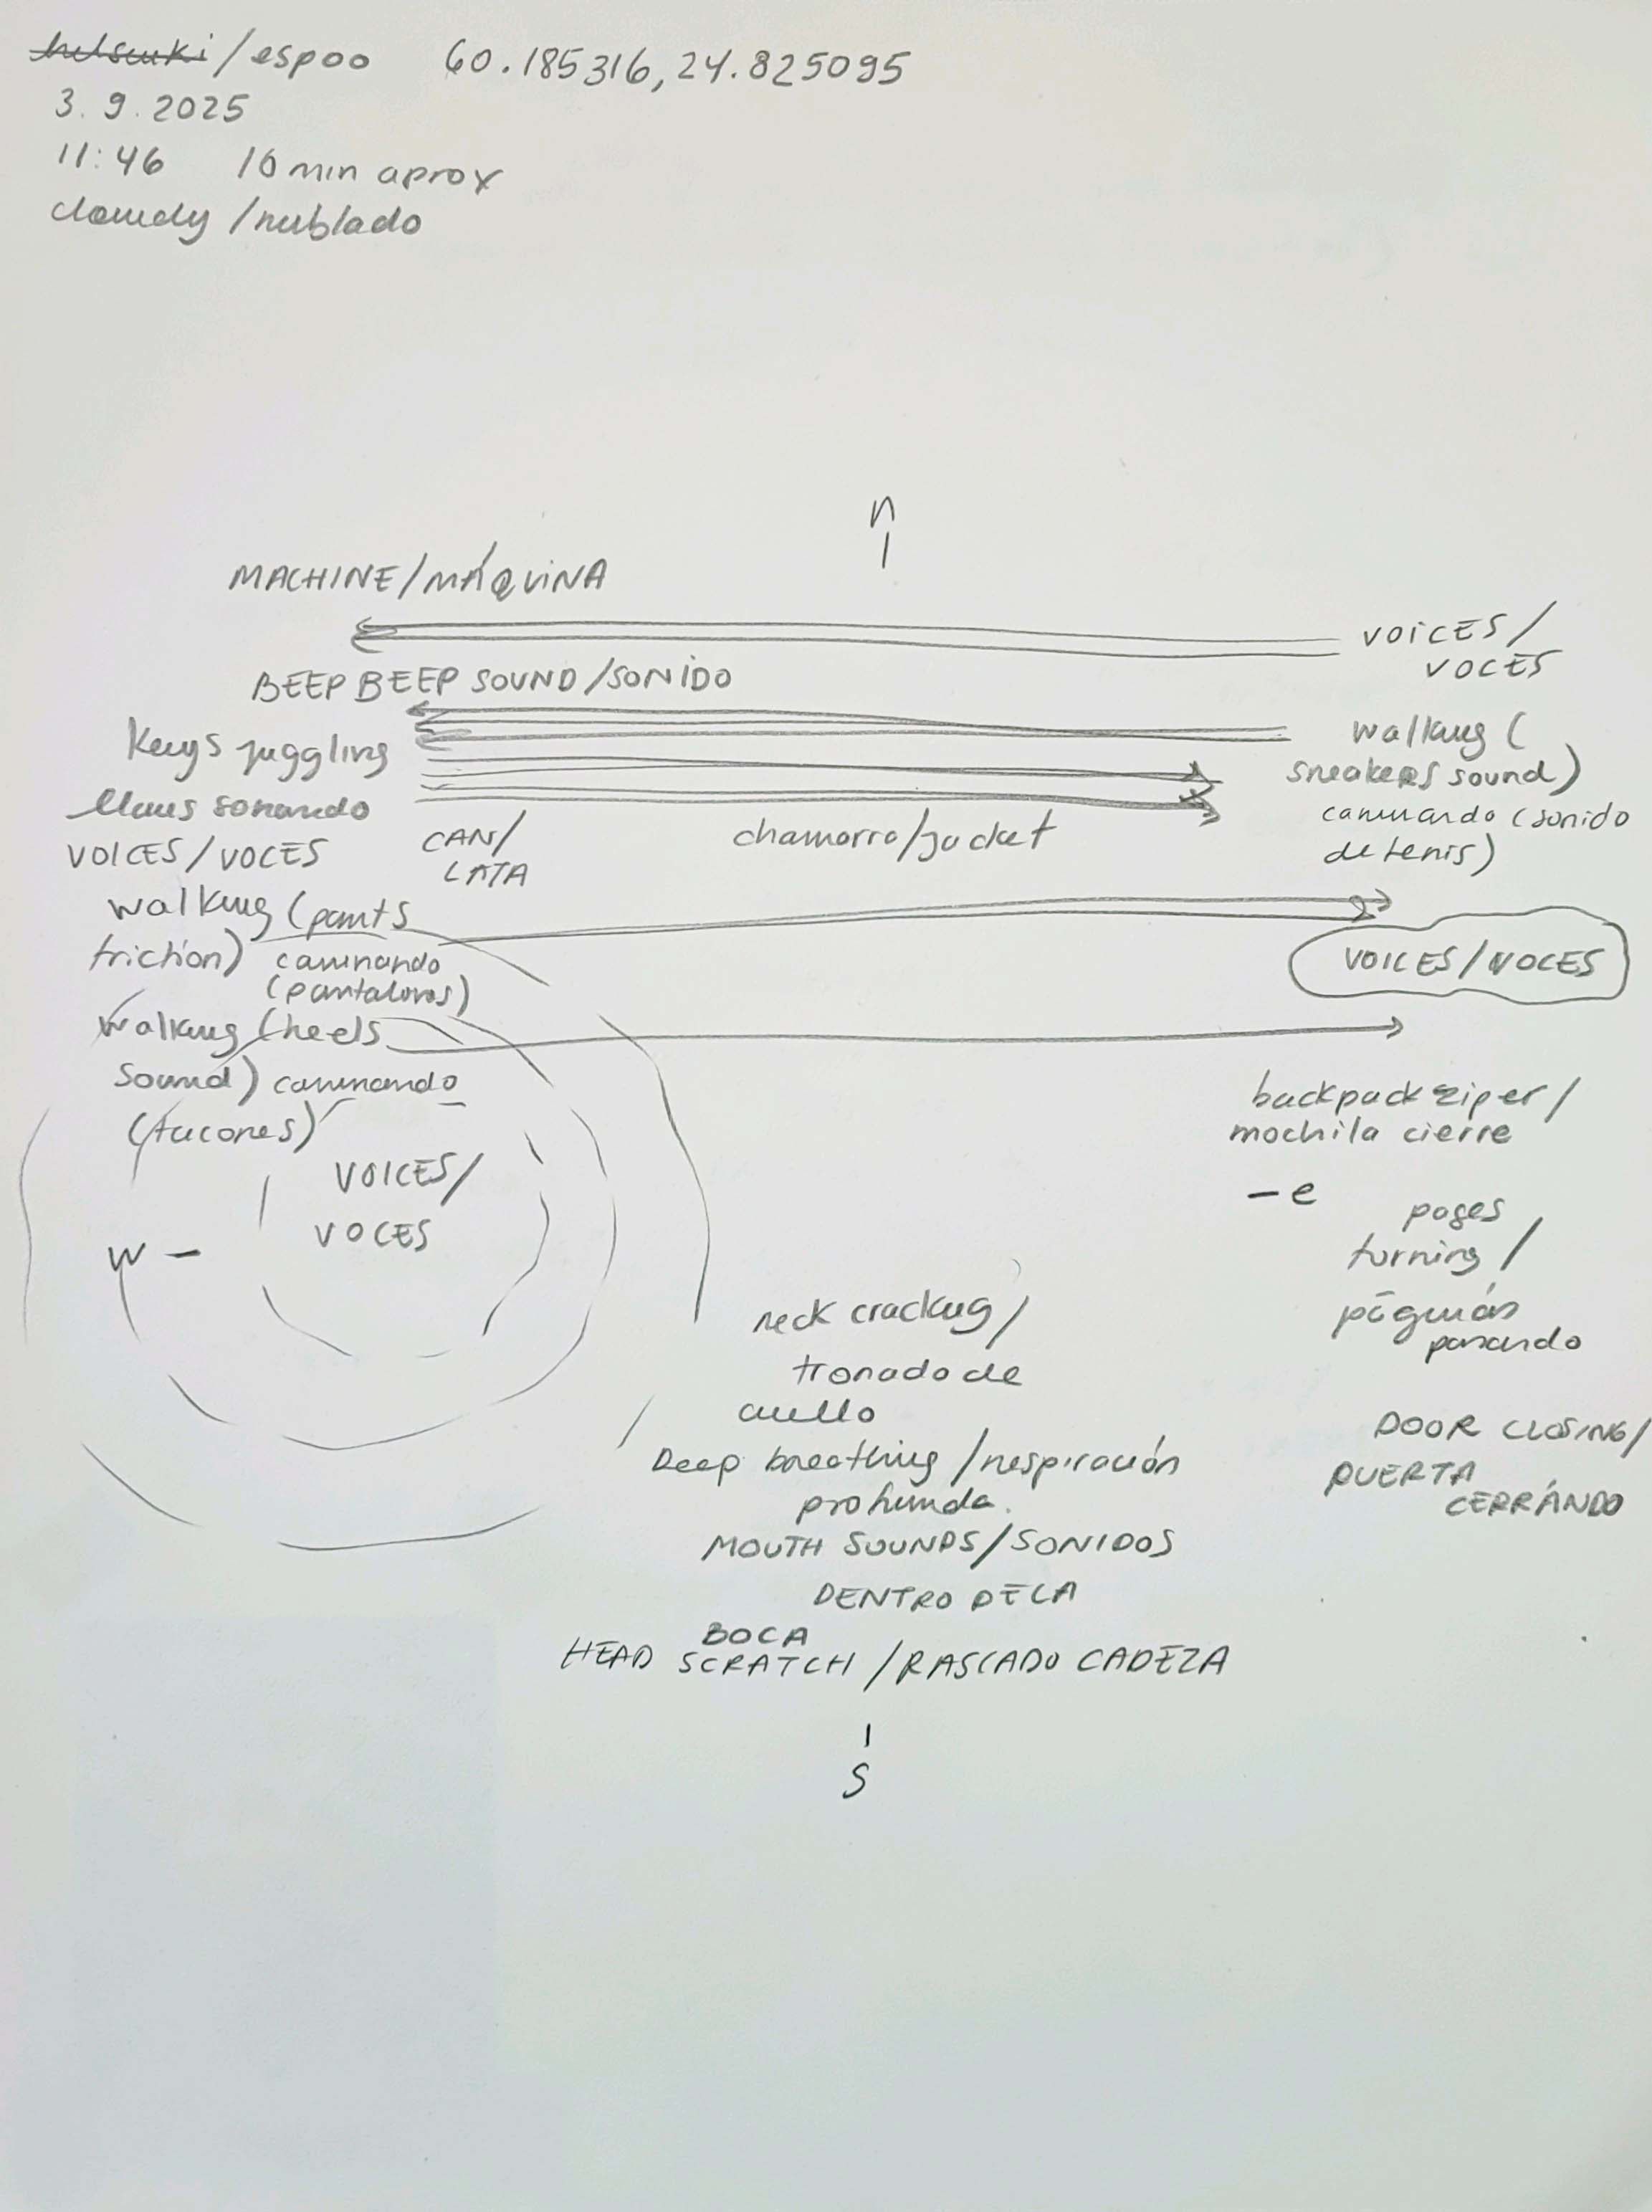 helsinki/espoo 60.185316, 24.825095
3.9.2025
11:46 10 min aprox
cloudy/nublado
n
MACHINE/MÁQUINA
VOICES/
VOCES
BEEP BEEP SOUND/SONIDO
walking (
sneakers sound)
caminando (sonido
de tenis)
Keys juggling
llaves sonando
VOICES/VOCES
CAN/
LATA
chamarra/jacket
walking (pants
friction) caminando
(pantalones)
VOICES/VOCES
walking (heels
sound) caminando
(tacones)
VOICES/
VOCES
w
backpack ziper/
mochila cierre
e
pages
turning/
páginas
pasando
neck cracking/
tronado de
cuello
Deep breathing/respiración
profunda.
DOOR CLOSING/
PUERTA
CERRÁNDO
MOUTH SOUNDS/SONIDOS
DENTRO DE LA
BOCA
HEAD SCRATCH/RASCADO CABEZA
S